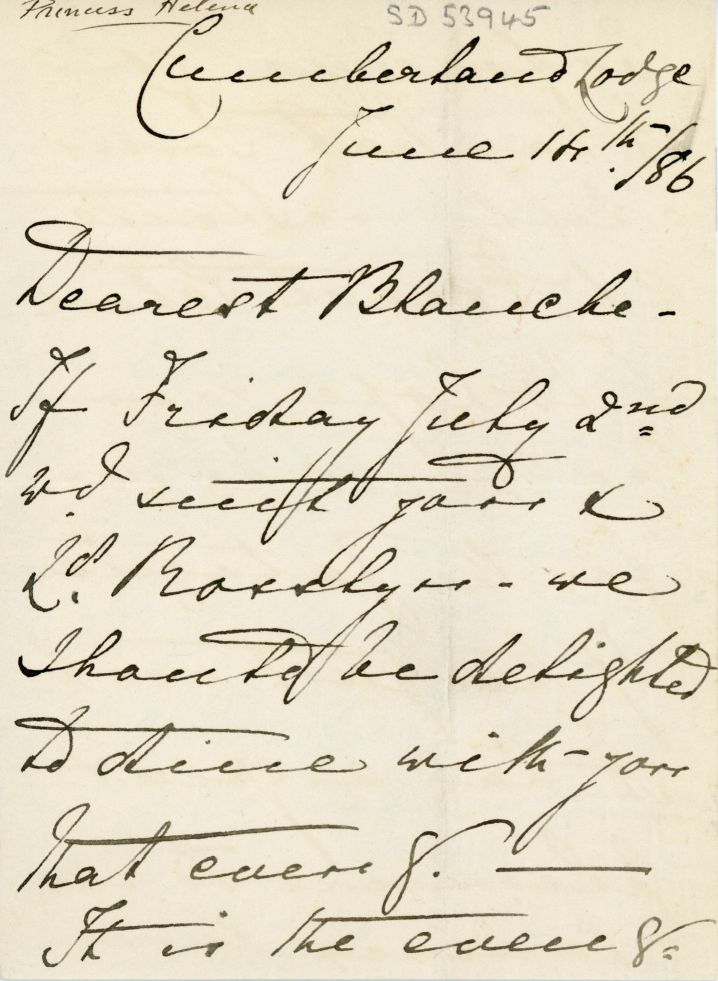 Princess Helena
SD 53945
Cumberland Lodge
June 14th/86
Dearest Blanche -
If Friday July 2nd
wd suit you &
Ld. Rosslyn - we
should be delighted
to dine with you
that eveng. —
It is the eveng.